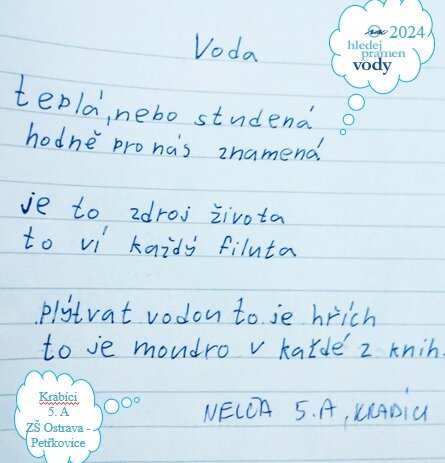 Voda
2024
hledej
pramen
vody
teplá, nebo studená
hodně pro nás znamená
je to zdroj života
to ví každý filuta
plýtvat vodou to je hřích
to je moudro v každé z knih.
NELČA 5.A, KRABÍCI
Krabíci
5. A
ZŠ Ostrava -
Petřkovice